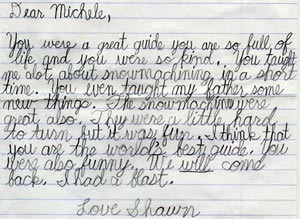 Dear Michele,
You were a great guide you are so full of
life and you were so kind. You taught
me alot about snowmachining in a short
time. You even taught my father some
new things. The snowmachine were
great also. They were a little hard
to turn but it was fun. I think that
you are the world's best guide. You
were also funny. We will come
back. I had a blast.
Love Shawn